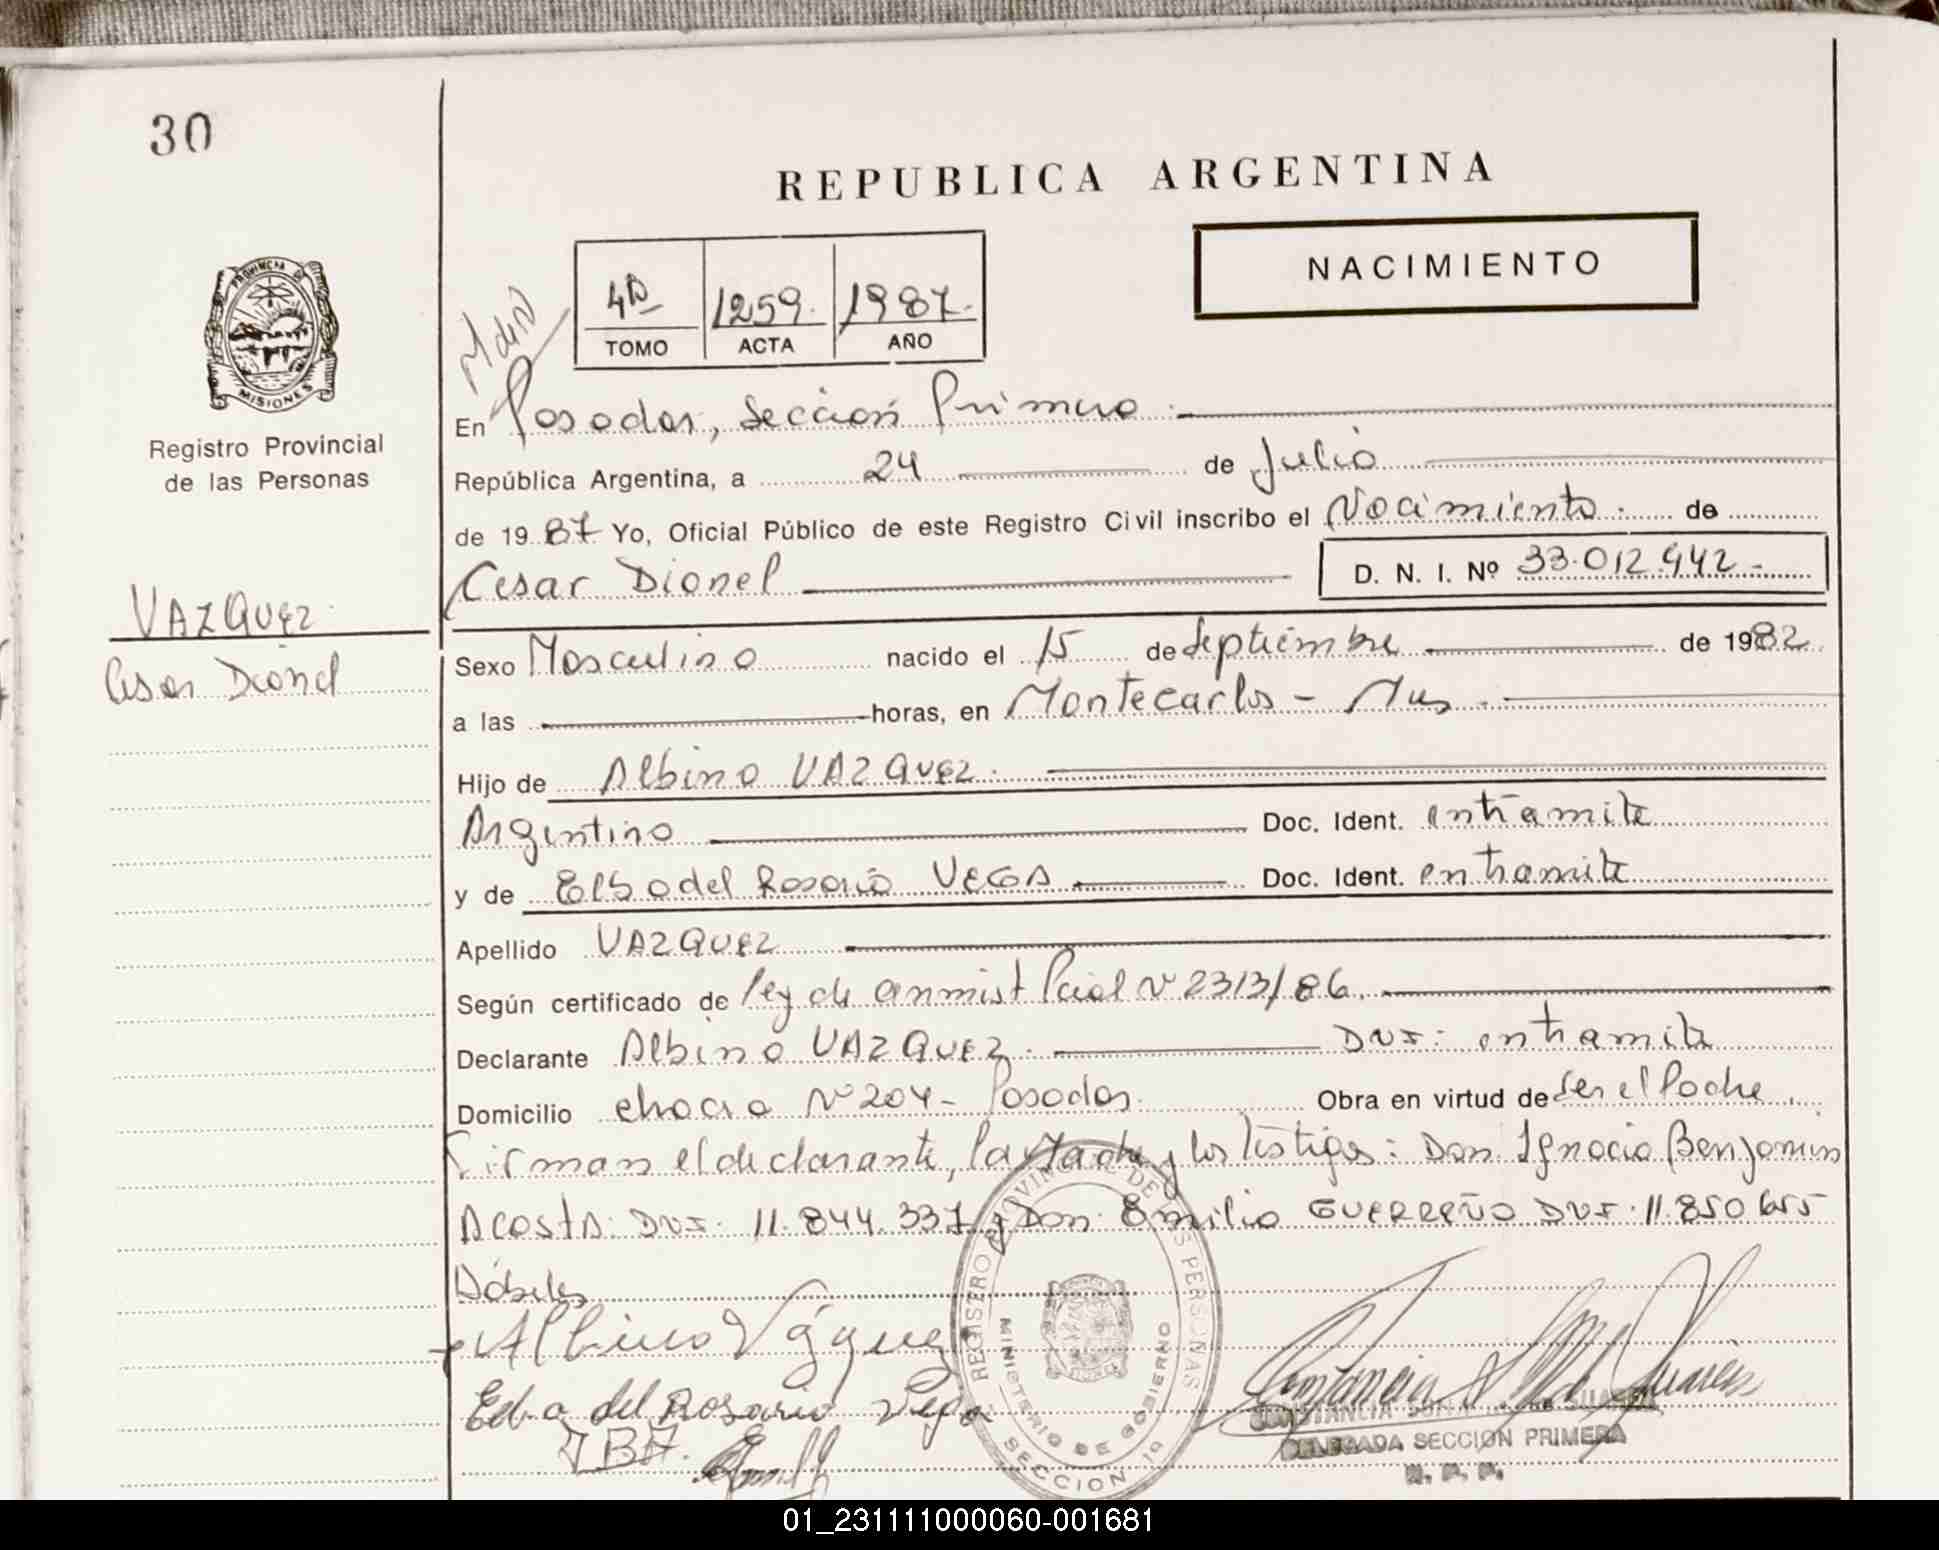 30
REPUBLICA ARGENTINA
NACIMIENTO
1259. 1987.
TOMO ACTA AÑO
PROVINCIA DE
MISIONES
Registro Provincial
de las Personas
En Posadas, Sección Primera.
República Argentina, a 24 de Julio
de 1987 Yo, Oficial Público de este Registro Civil inscribo el Nacimiento. de
Cesar Dionel D. N. I. Nº 33.012.942.-
VAZQUEZ.
Cesar Dionel
Sexo Masculino nacido el 15 de Septiembre de 1982
a las horas, en Montecarlos - Mns.
Hijo de Albino VAZQUEZ.
Argentino Doc. Ident. entramite
y de Elba del Rosario VEGA Doc. Ident. entramite
Apellido VAZQUEZ
Según certificado de ley de Pcial Nº 2313/86.
Declarante Albino VAZQUEZ. DNI: entramite
Domicilio chacra Nº 204 - Posadas. Obra en virtud de Ser el Padre.
Firman el declarante, la Madre y los testigos: Don Ignacio Benjamin
Acosta: DNI. 11.844.337 y Don: Emilio GUERREÑO DNI. 11.850.655
Hábiles
Albino Vázquez
Elba del Rosario Vega
JBA.
REGISTRO PROVINCIAL DE LAS PERSONAS
MINISTERIO DE GOBIERNO
SECCION 1ª
CONSTANCIA SUAREZ
DELEGADA SECCION PRIMERA
R. P. P.
01_231111000060-001681